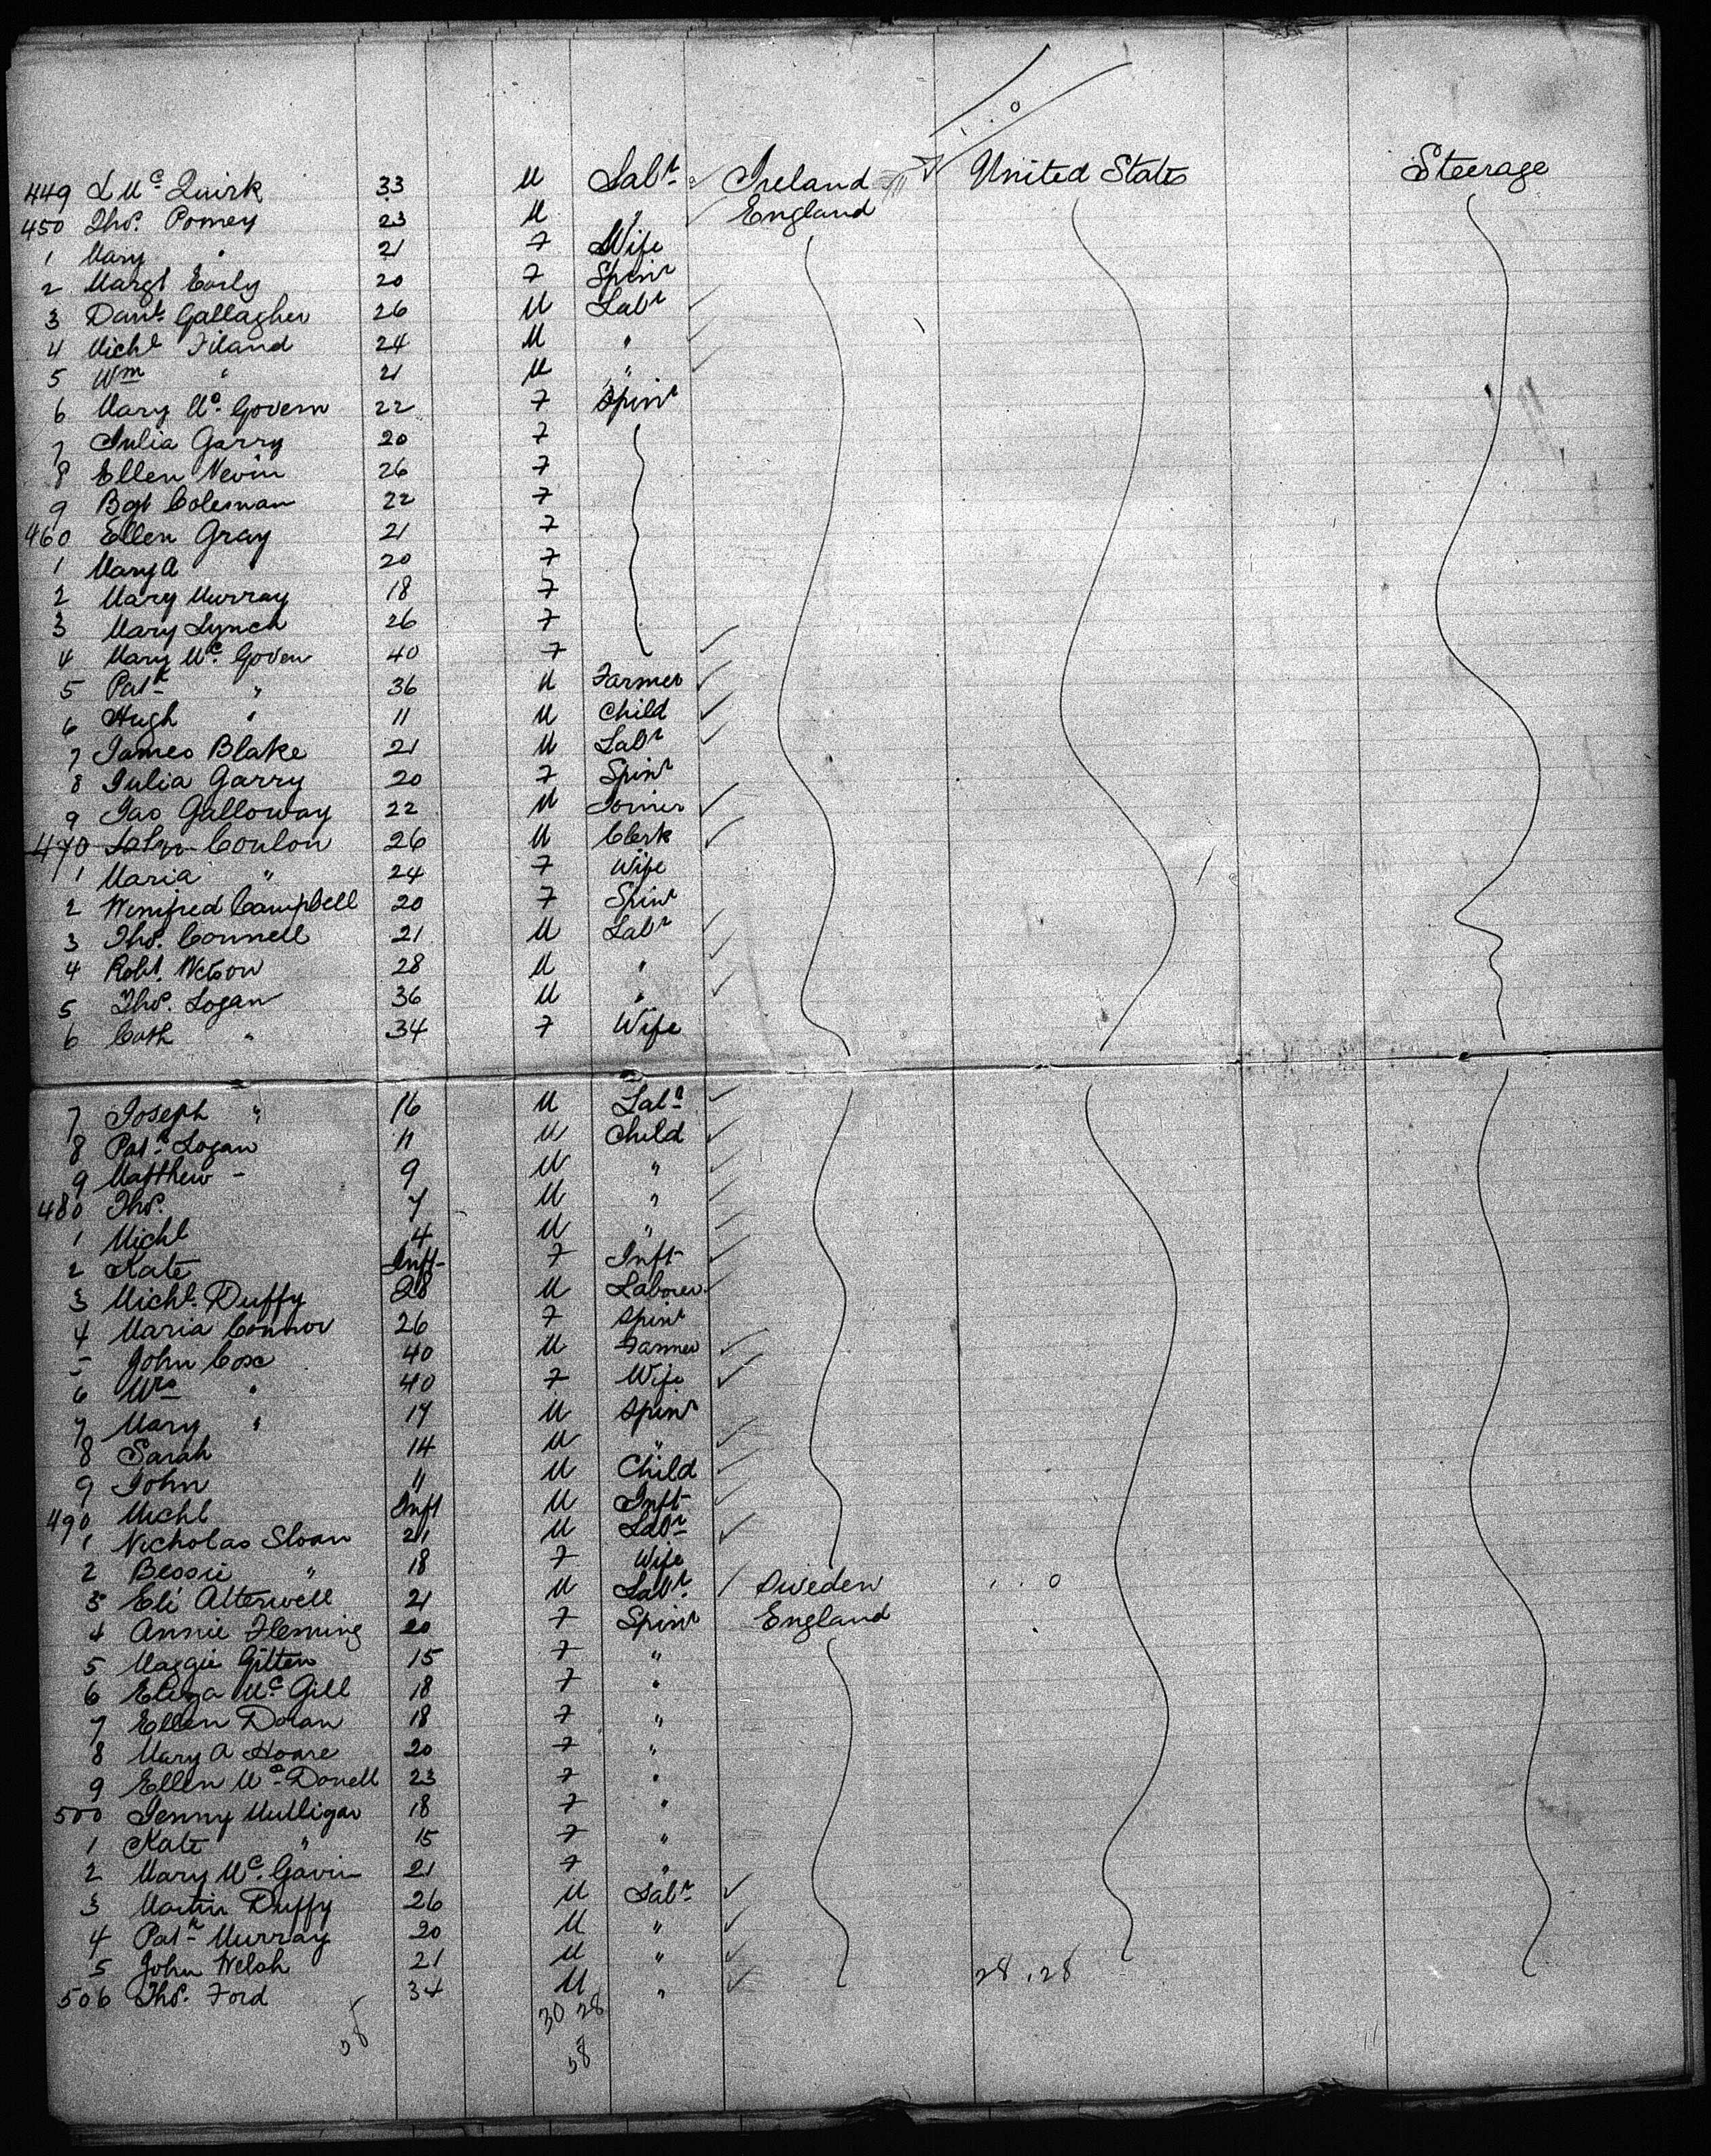 449 L McQuirk 33 M Labr Ireland United States Steerage
450 Thos. Pomey 23 M " England
1 Mary " 21 F Wife
2 Margt Early 20 F Spinr
3 Danl Gallagher 26 M Labr
4 Michl Filand 24 M "
5 Wm " 21 M "
6 Mary Mc Govern 22 F Spinr
7 Julia Garry 20 F
8 Ellen Nevin 26 F
9 Bgt Coleman 22 F
460 Ellen Gray 21 F
1 Mary A 20 F
2 Mary Murray 18 F
3 Mary Lynch 26 F
4 Mary Mc Goven 40 F
5 Patk " 36 M Farmer
6 Hugh " 11 M Child
7 James Blake 21 M Labr
8 Julia Garry 20 F Spinr
9 Jas Galloway 22 M Joiner
470 Conlon 26 M Clerk
1 Maria " 24 F Wife
2 Winifred Campbell 20 F Spinr
3 Thos. Connell 21 M Labr
4 Robt. Nelson 28 M "
5 Thos. Logan 36 M "
6 Cath " 34 F Wife
7 Joseph " 16 M Labr
8 Patk Logan 11 M Child
9 Matthew - 9 M "
480 Thos. 7 M "
1 Michl 4 M "
2 Kate Inft F Inft
3 Michl. Duffy 28 M Laborer
4 Maria Connor 26 F Spinr
5 John Cox 40 M Farmer
6 Mrs " 40 F Wife
7 Mary " 17 M Spinr
8 Sarah 14 M "
9 John 11 M Child
490 Michl Inft M Inft
1 Nicholas Sloan 21 M Labr
2 Bessie " 18 F Wife
3 Eli Alterwell 21 M Labr Sweden
4 Annie Fleming 20 F Spinr England
5 Maggie Gitten 15 F "
6 Eliza Mc Gill 18 F "
7 Ellen Doran 18 F "
8 Mary A Hoare 20 F "
9 Ellen Mc Donell 23 F "
500 Jenny Mulligan 18 F "
1 Kate " 15 F "
2 Mary Mc. Gavin 21 F "
3 Martin Duffy 26 M Labr
4 Patk Murray 20 M "
5 John Welsh 21 M " 28.28
506 Thos. Ford 34 M "
30 28
58 58